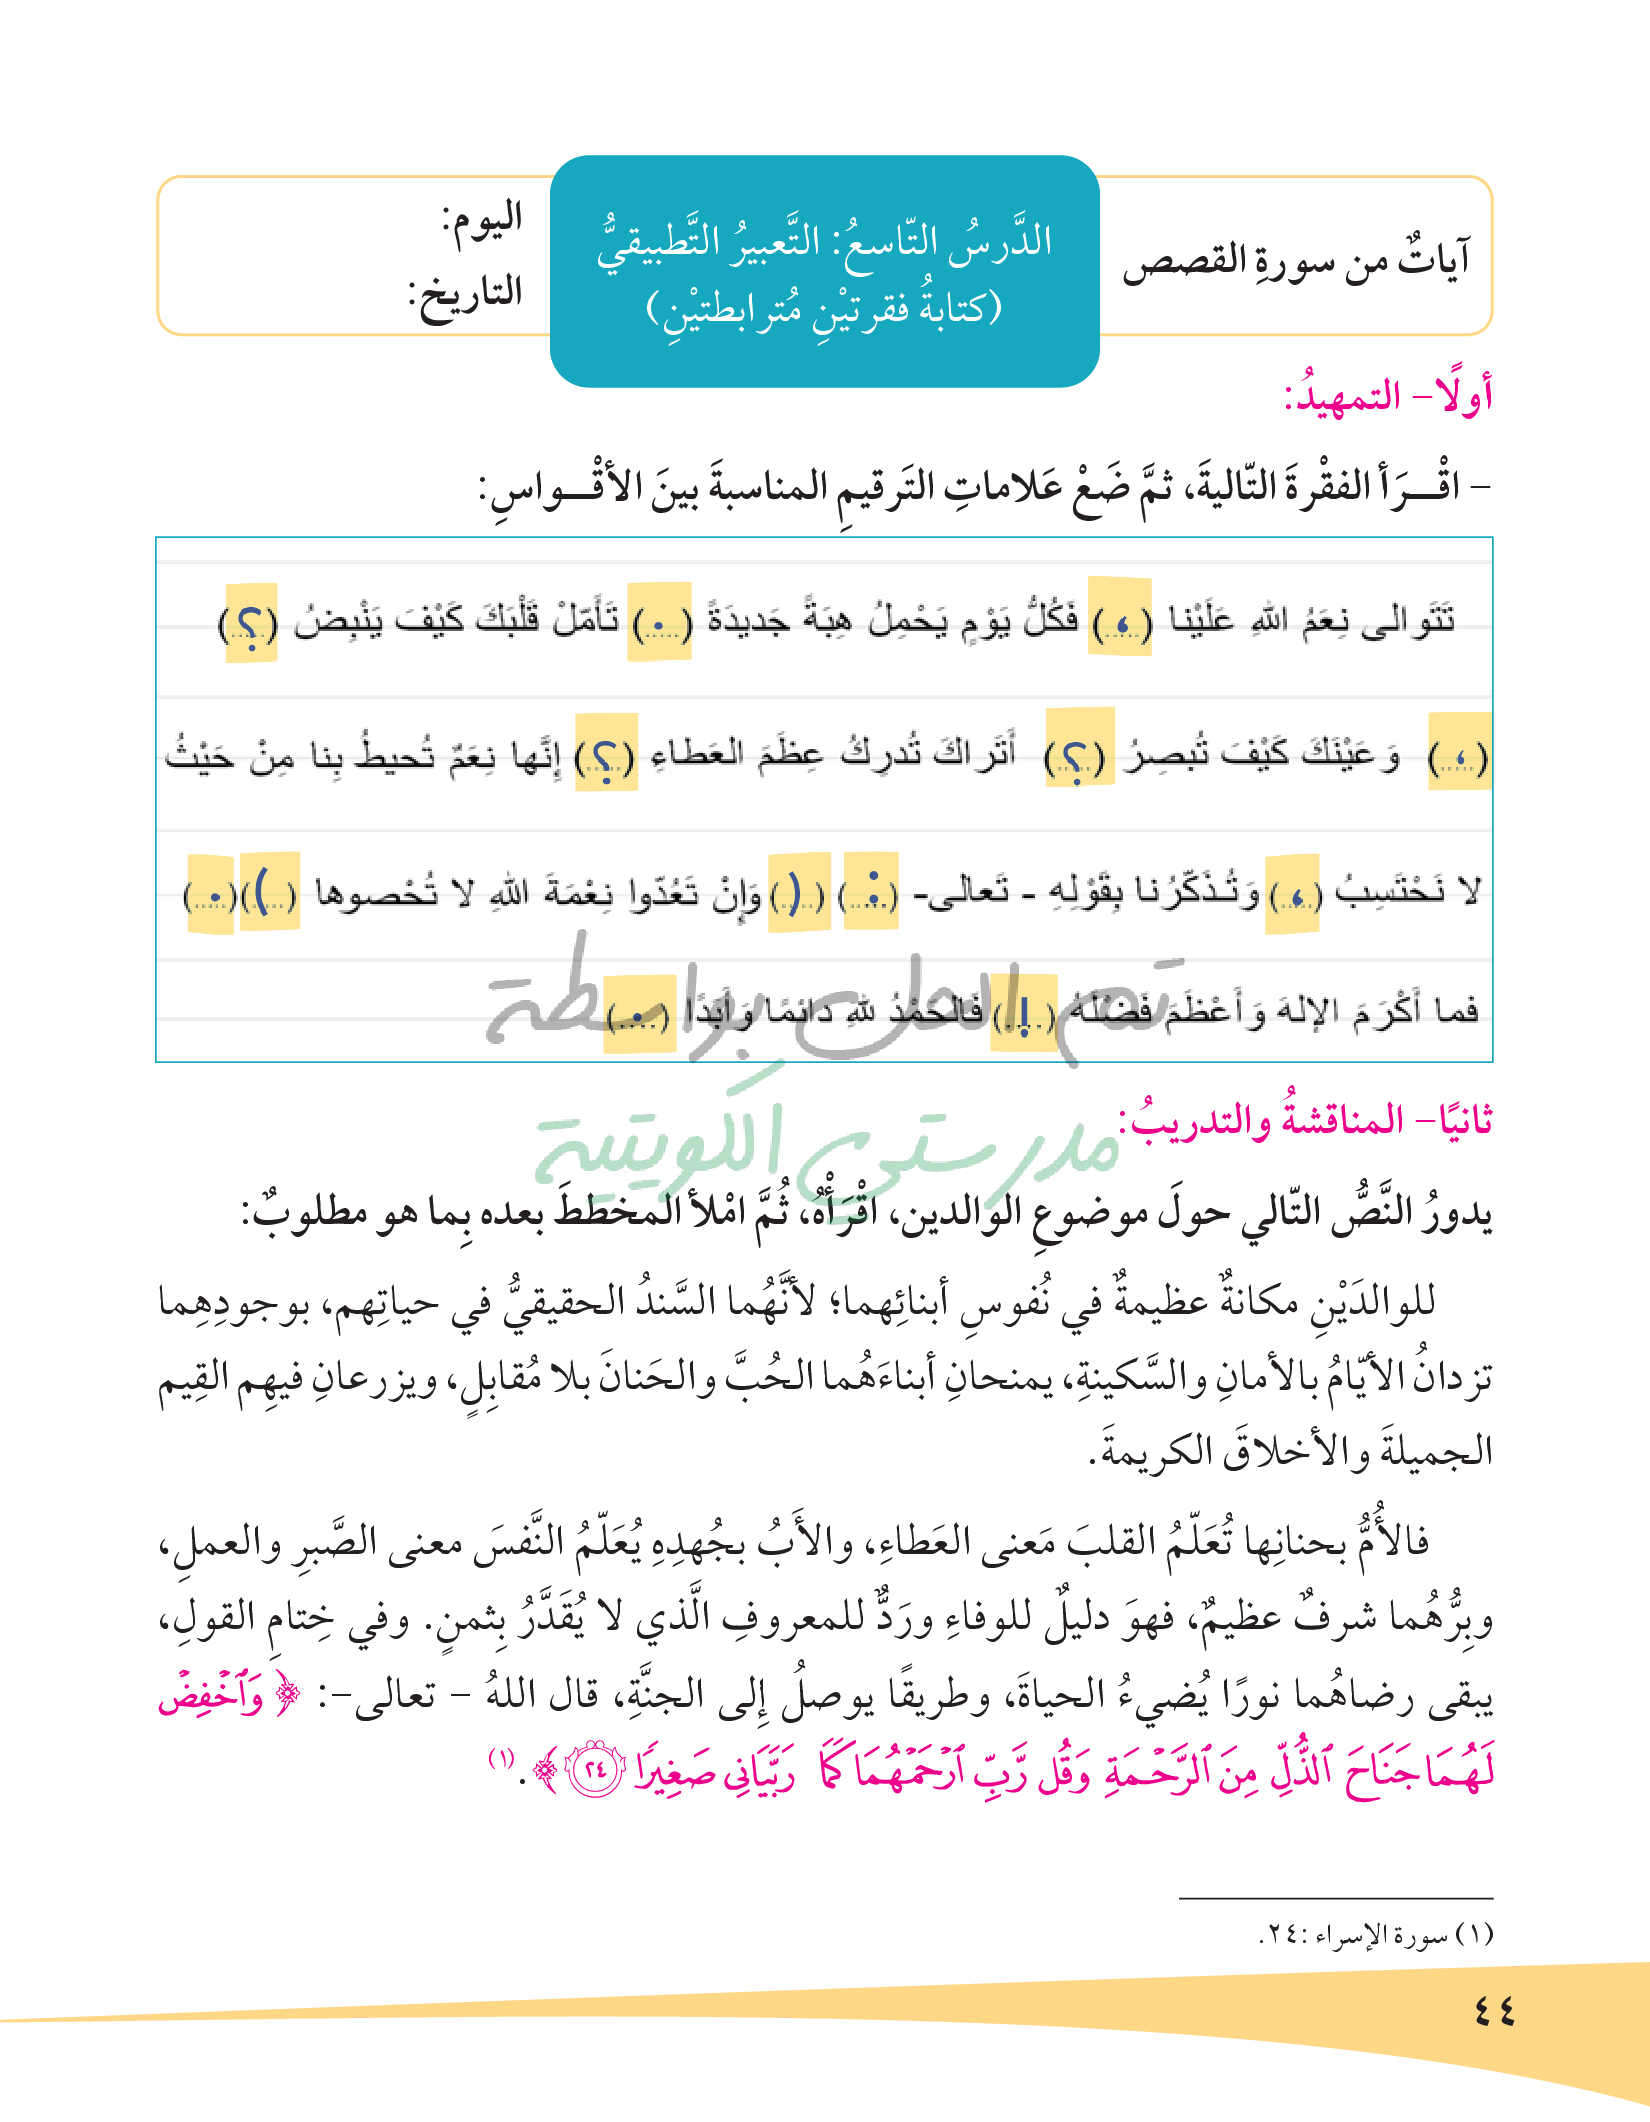 آياتٌ من سورةِ القصص
الدَّرسُ التّاسعُ: التَّعبيرُ التَّطبيقيُّ
(كتابةُ فقرتيْنِ مُترابطتيْنِ)
اليوم:
التاريخ:
أولًا- التمهيدُ:
- اقْـــرَأ الفقْرةَ التّاليةَ، ثمَّ ضَعْ عَلاماتِ التَرقيمِ المناسبةَ بينَ الأقْـــواسِ:
تَتَوالى نِعَمُ اللهِ عَلَيْنا (،) فَكُلُّ يَوْمٍ يَحْمِلُ هِبَةً جَديدَةً (.) تَأَمّلْ قَلْبَكَ كَيْفَ يَنْبِضُ (؟)
(،) وَعَيْنَكَ كَيْفَ تُبصِرُ (؟) أَتَراكَ تُدرِكُ عِظَمَ العَطاءِ (؟) إنَّها نِعَمٌ تُحيطُ بِنا مِنْ حَيْثُ
لا نَحْتَسِبُ (،) وَتُذَكّرُنا بِقَوْلِهِ - تَعالى- (:) (() وَإِنْ تَعُدّوا نِعْمَةَ اللهِ لا تُحْصوها ()) (.)
فما أَكْرَمَ الإلهَ وَأَعْظَمَ فَضْلَهُ (!) فَالْحَمْدُ للهِ دائمًا وَأَبَدًا (.)
تم الحل بواسطة
مدرستي الكويتية
ثانيًا- المناقشةُ والتدريبُ:
يدورُ النَّصُّ التّالي حولَ موضوعِ الوالدين، اقْرَأْهُ، ثُمَّ امْلأ المخططَ بعده بِما هو مطلوبٌ:
للوالدَيْنِ مكانةٌ عظيمةٌ في نُفوسِ أبنائِهما؛ لأنَّهُما السَّندُ الحقيقيُّ في حياتِهم، بوجودِهِما
تزدانُ الأيّامُ بالأمانِ والسَّكينةِ، يمنحانِ أبناءَهُما الحُبَّ والحَنانَ بلا مُقابِلٍ، ويزرعانِ فيهِم القِيم
الجميلةَ والأخلاقَ الكريمةَ.
فالأُمُّ بحنانِها تُعَلّمُ القلبَ مَعنى العَطاءِ، والأَبُ بجُهدِهِ يُعَلّمُ النَّفسَ معنى الصَّبرِ والعملِ،
وبِرُّهُما شرفٌ عظيمٌ، فهوَ دليلٌ للوفاءِ ورَدٌّ للمعروفِ الَّذي لا يُقَدَّرُ بِثمنٍ. وفي خِتامِ القولِ،
يبقى رضاهُما نورًا يُضيءُ الحياةَ، وطريقًا يوصلُ إلى الجنَّةِ، قال اللهُ - تعالى-: ﴿ وَٱخۡفِضۡ
لَهُمَا جَنَاحَ ٱلذُّلِّ مِنَ ٱلرَّحۡمَةِ وَقُل رَّبِّ ٱرۡحَمۡهُمَا كَمَا رَبَّيَانِي صَغِيرٗا ٢٤ ﴾. (١)
(١) سورة الإسراء :٢٤.
٤٤